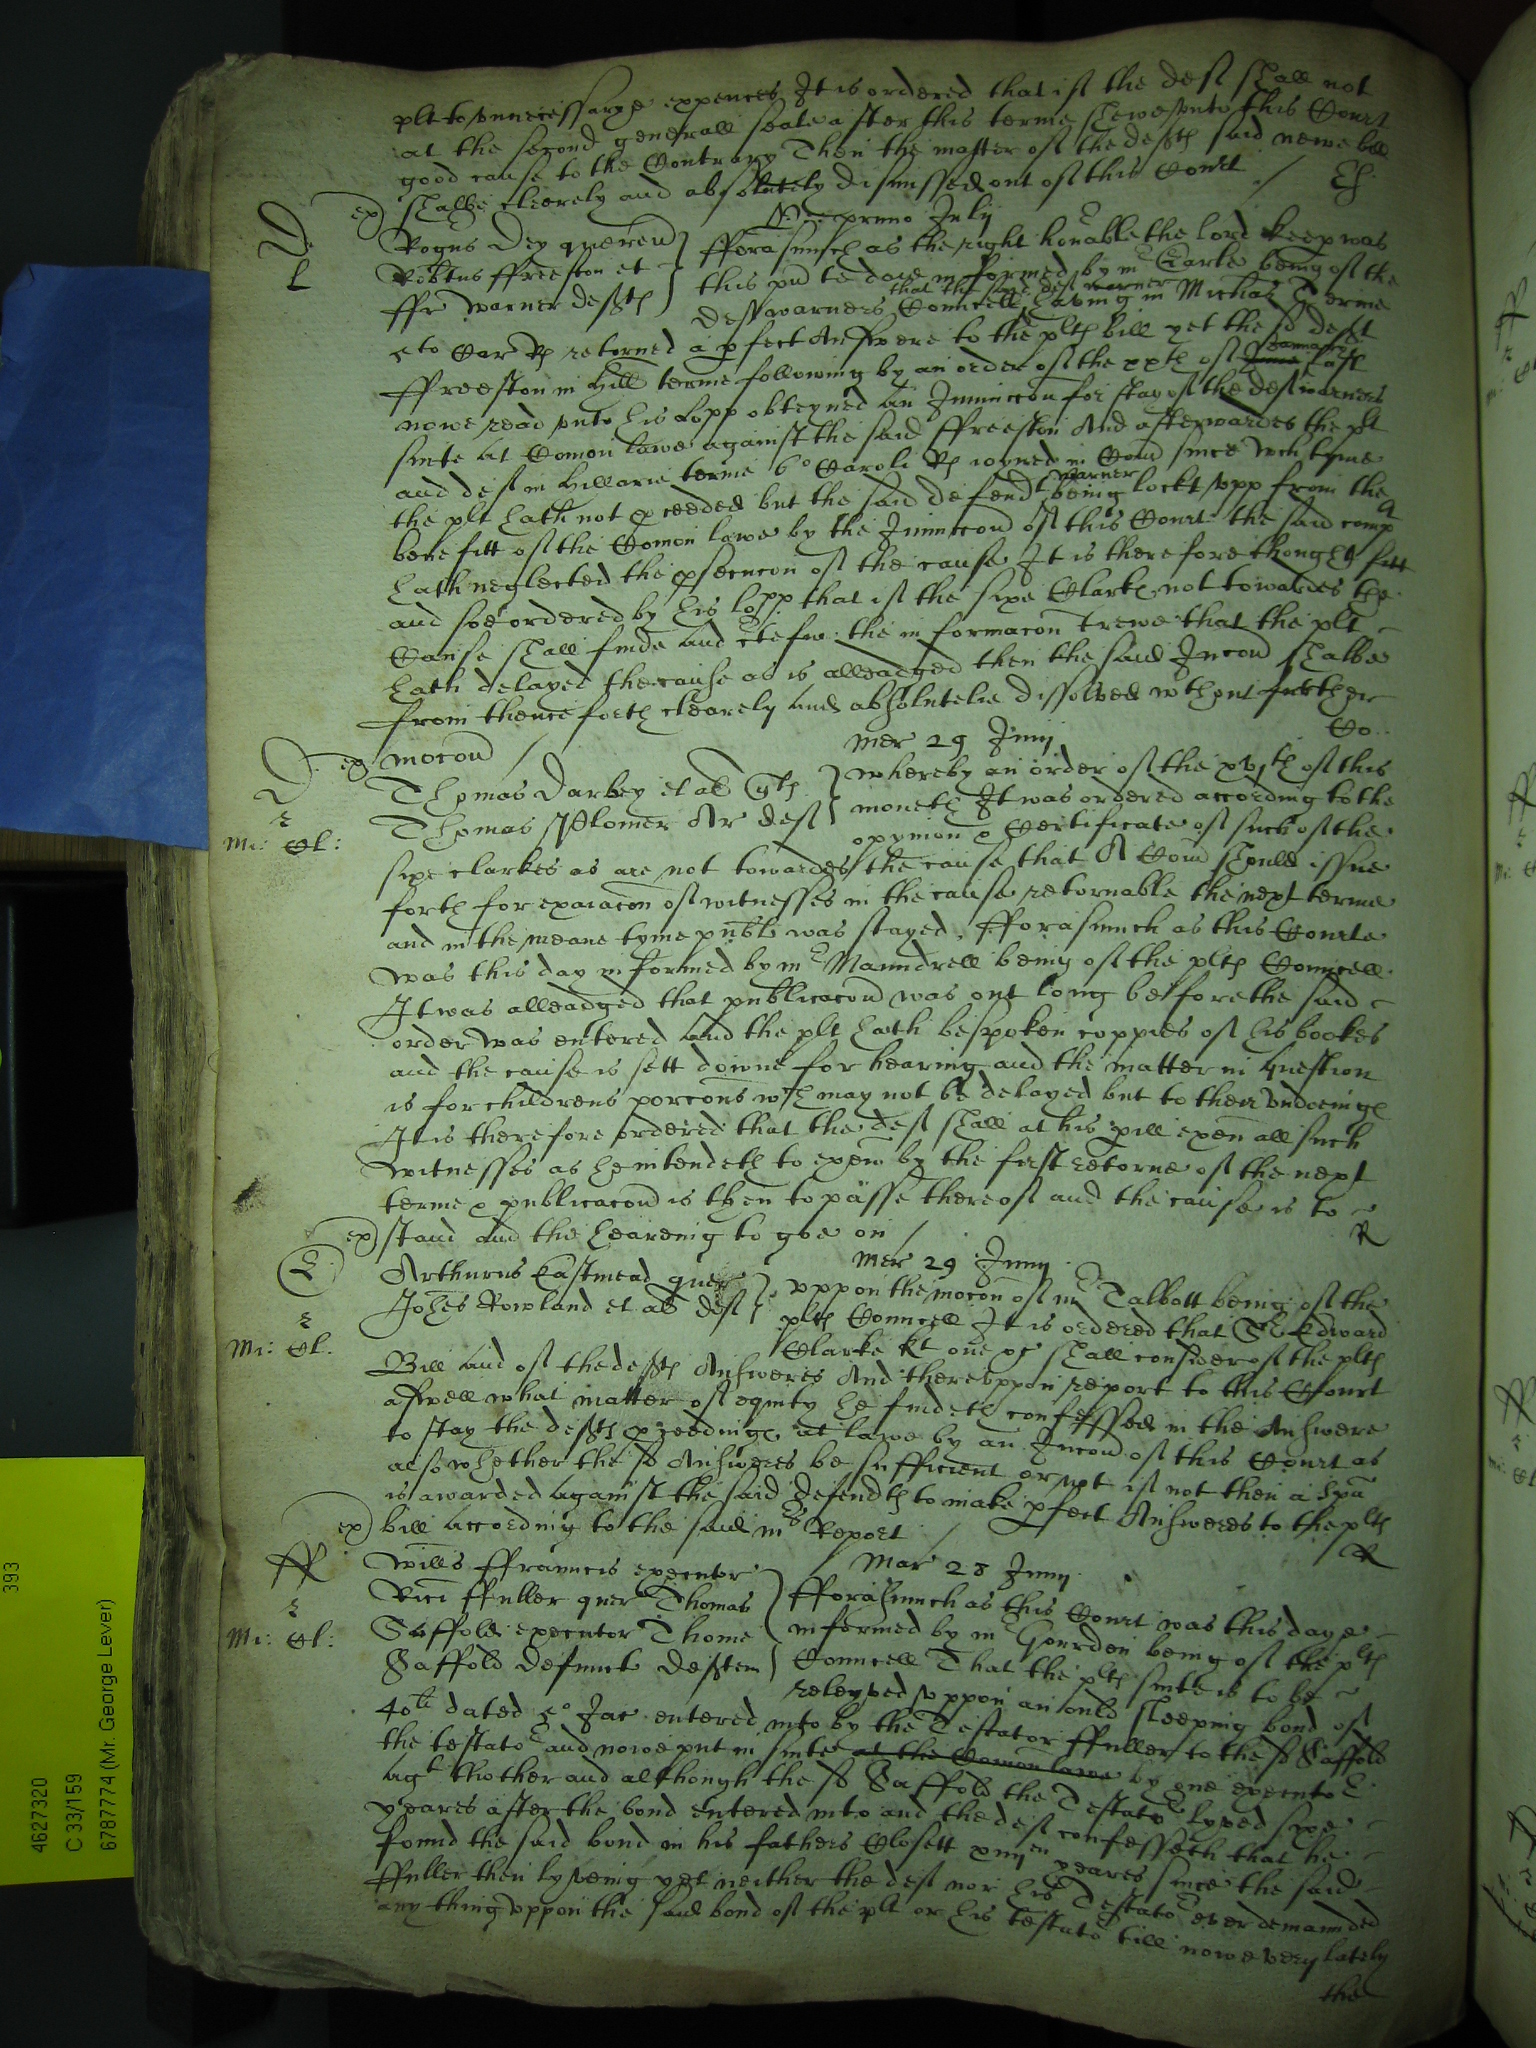 plt to vnnecessarye expences It is ordered that if the deft shall not
at the second generall seale after this terme shewe vnto this Court
good cause to the Contrary Then the matter of the defts said newe bill
shalbe clerely and absolutely dismissed out of this Court /
ex)
De
L
primo July
Rogus Dey quereu
Robtus ffreeston et
ffr Warner defts
fforasmuch as the right honable the lord Keep was
this pnte daye informed by mr Clarke being of the
deft warners Councell that the said deft warner having in Michas Terme
5to Car Rs retorned a pfect Answere to the plts bill yet the sd deft
ffreeston in Hill terme following by an order of the xxth of June January last
nowe read vnto his Lopp obteyned an Iniuncon for stay of the deft warners
suite at Comon lawe against the said ffreeston And afterwardes the plt
and deft in Hillarie terme 6o Caroli Rs ioyned in Com since wch tyme
the plt hath not pceeded but the said defend warner being lockt vpp from the
benefitt of the Comon lawe by the Iniuncon of this Court the said comp
hath neglected the psecucon of the cause It is therefore thought fitt
and soe ordered by his lopp that if the sixe Clarks not towardes the
Cause shall finde and certefie the informacon trewe that the plt
hath delayed the cause as is alleadged then the said Iniuncon shalbe
from thenceforth clearely and absolutelie dissolved wthout further
mocon /
Co
ex)
D
Mi: Cl:
Mer 29 Junij
Thomas Darbey et al qts
Thomas Plomer Ar deft
whereby an order of the xvjth of this
moneth It was ordered according to the
opynion & Certificate of such of the
sixe clarkes as are not towardes the cause that A Com should issue
forth for exaiacon of witnesses in the cause retornable the next terme
and in the meane tyme publi was stayed. fforasmuch as this Courte
was this day informed by mr Maundrell being of the plts Councell
It was alleadged that publicacon was out long before the said
order was entered And the plt hath bespoken coppies of his bookes
and the cause is sett downe for hearing and the matter in question
is for childrens porcons wch may not be delayed but to their vndoeinge
It is therefore ordered that the deft shall at his pill exen all such
witnesses as he intendeth to exen by the first retorne of the next
terme & publicacon is then to passe thereof and the cause is to
stand and the heareing to goe on /
R
ex)
E
Mi: Cl.
Mer 29 Junij
Arthurus Eastmead quer
Johes Rowland et al deft
vppon the mocon of mr Talbott being of the
plts Councell It is ordered that Sr Edward
Clarke Kt one &c shall consider of the plts
Bill and of the defts Answeres And therevppon report to this Court
aswell what matter of equity he findeth confessed in the Answere
to stay the defts pceedings at lawe by an Iniuncon of this Court as
also whether the sd Answeres be sufficient or not if not then a Spa
is awarded against the said defendts to make pfect Answeres to the plts
bill according to the said mrs Report /
R
ex)
ff
Mi: Cl:
Mar 28 Junij
Willus ffrauncis executor
Rici ffuller quer Thomas
Saffold executor Thome
Saffold defunct deften
fforasmuch as this Court was this daye
informed by mr Gourden being of the plts
Councell That the plts suite is to be
releyved vppon an ould sleeping bond of
40li dated 5o Jac entered into by the Testator ffuller to the sd Saffold
the testator and nowe put in suite at the Comon lawe by one executor
agt thother and although the sd Saffold the Testator lyved sixe
yeares after the bond entered into and the deft confesseth that he
found the said bond in his fathers Closett xviijen yeares since the said
ffuller then lyveing yet neither the deft nor his Testator ever demaunded
any thing vppon the said bond of the plt or his testator till nowe very lately
the
393
4627320
C 33/159
6787774 (Mr. George Lever)